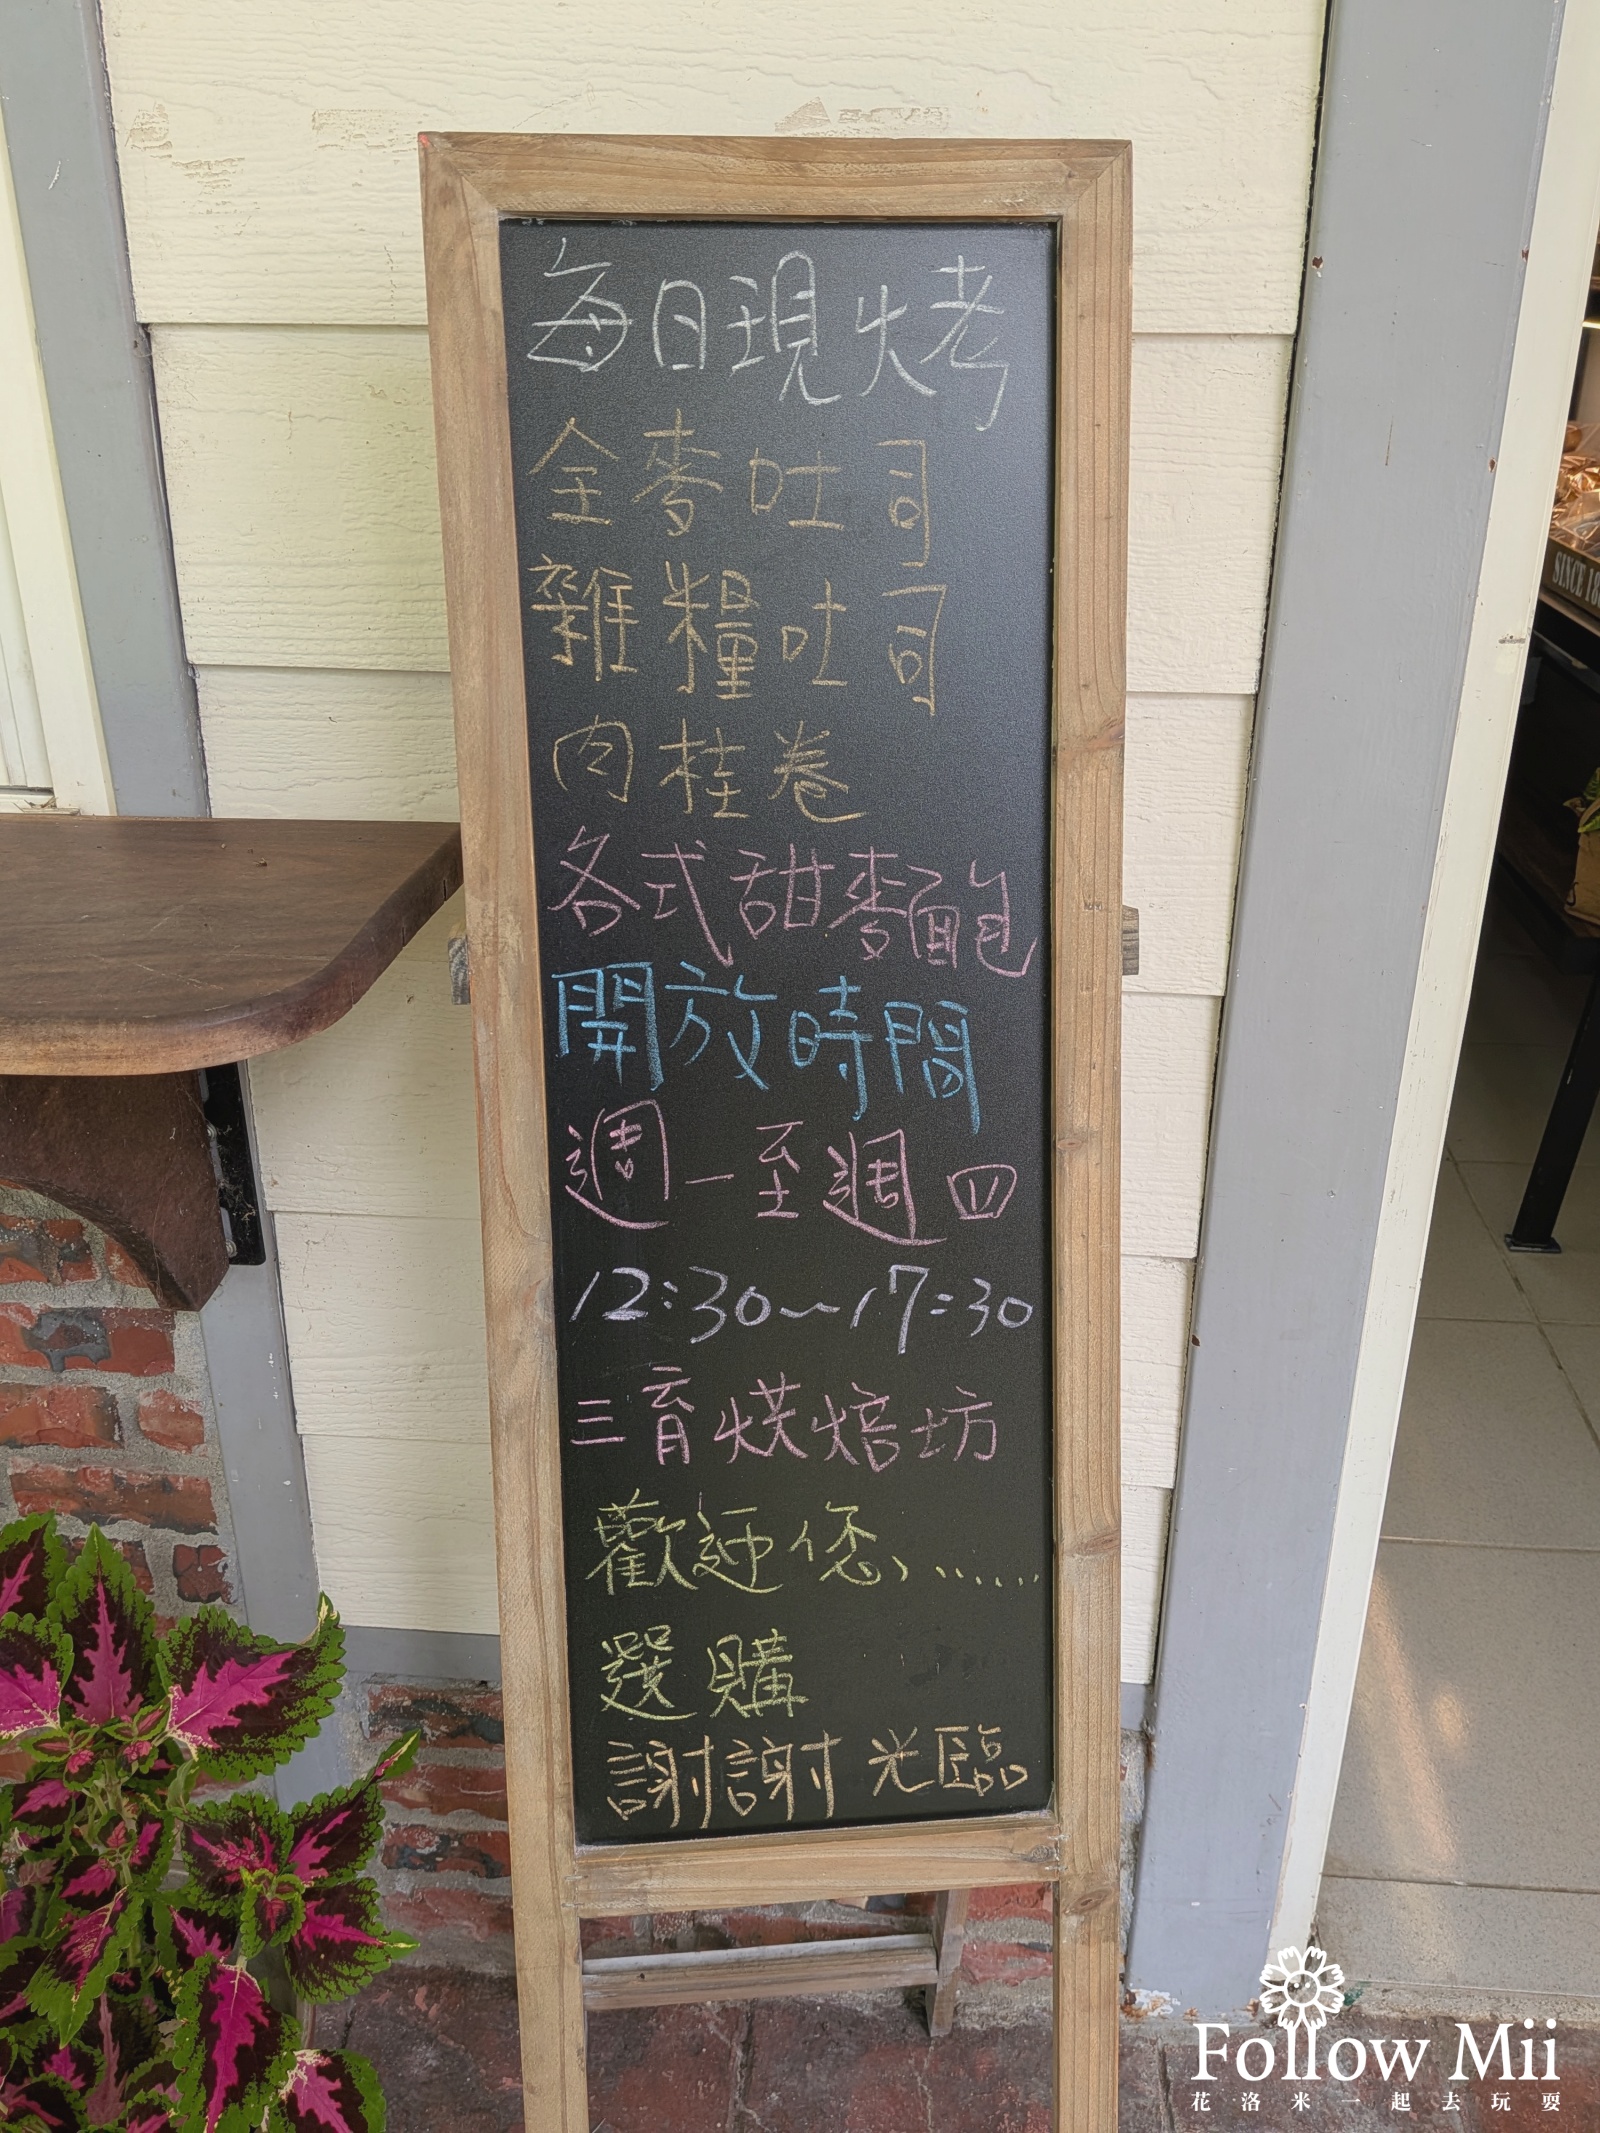 每日現烤
全麥吐司
雜糧吐司
肉桂卷
各式甜麥麵包
開放時間
週一至週四
12:30~17:30
三育烘焙坊
歡迎您、......
選購
謝謝光臨
SINCE 18
Follow Mii
花洛米一起去玩耍